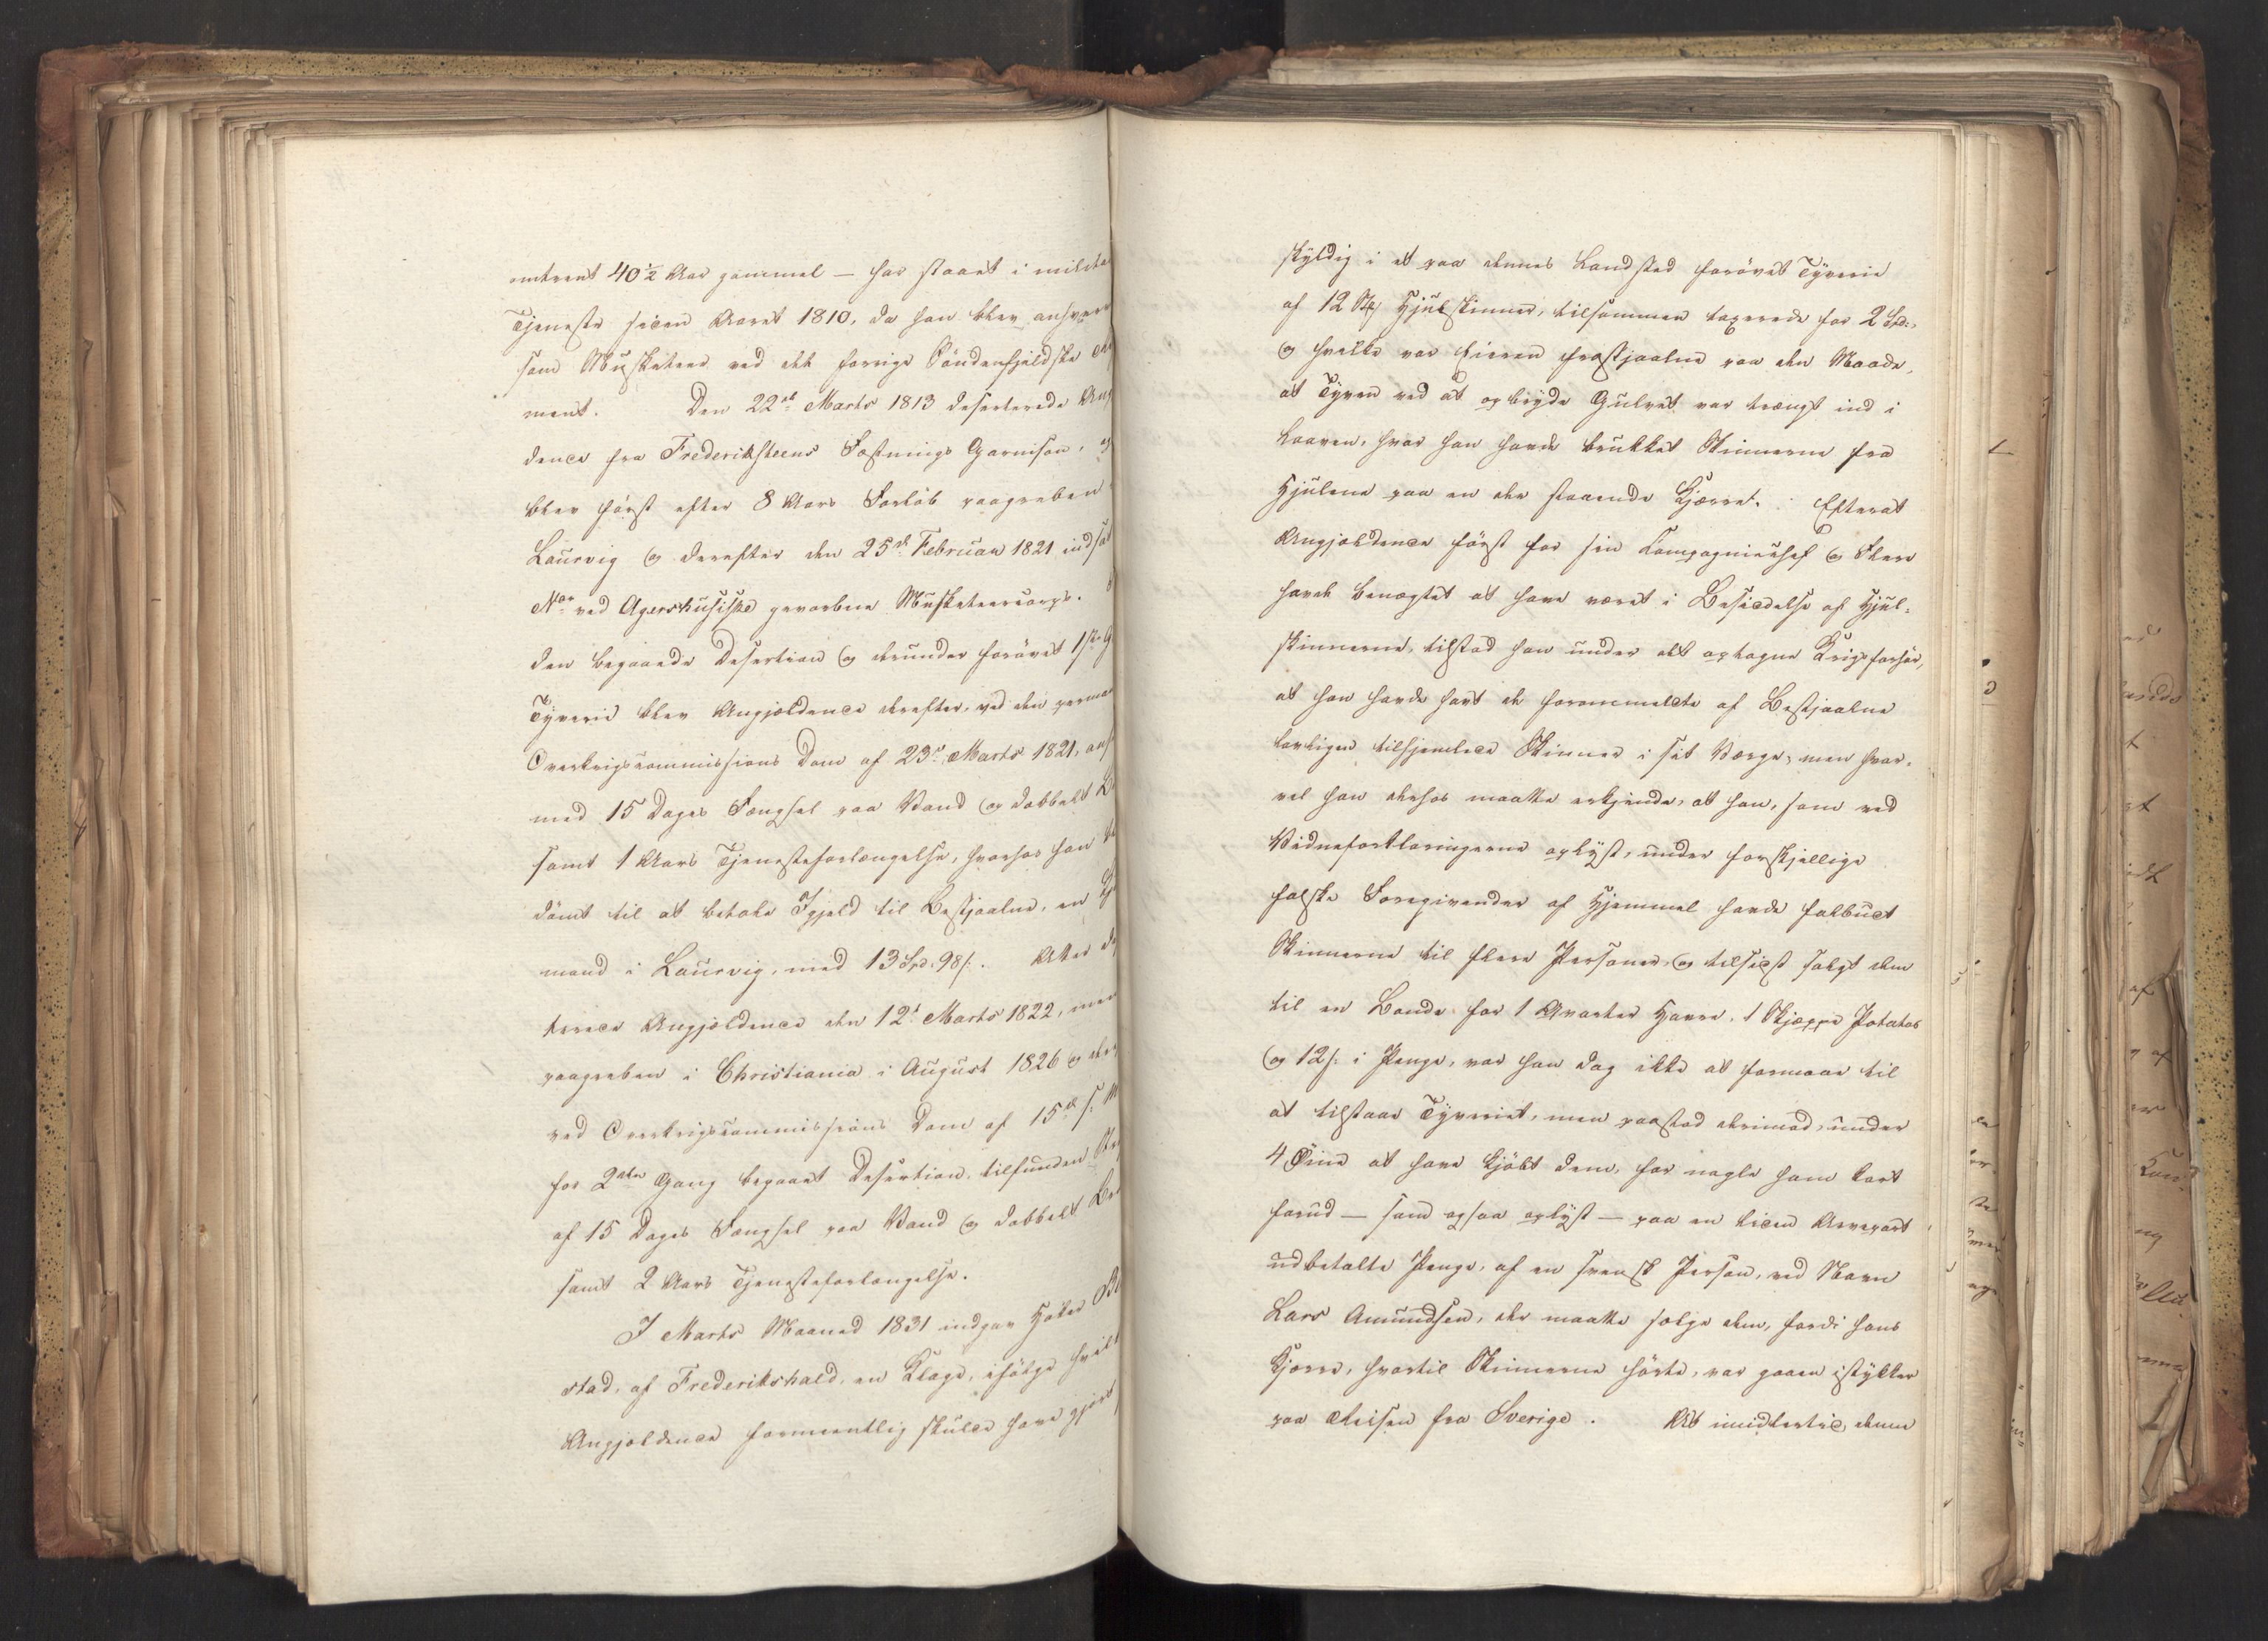 omtrent 40 1/2 Aar gammel — har staaet i militai
Tjeneste siden Aaret 1810, da han blev anhverv
som Musketeer ved det forrige Söndenfjeldske
ment. Den 22de Marts 1813 deserterede Ang
dende fra Frederiksteens Fæstnings Garnison, og
blev först efter 8 Aars Forlöb paagreben
Laurvig og derefter den 25de Februar 1821 indsat
No ved Agershusiske gevorbne Musketeercorps.
den begaaede Desertion og derunder forövet 1ste G
Tyverie blev Angjeldende derefter, ved den perma
Overkrigscommissions Dom af 23de Marts 1821, ans
med 15 Dages Fængsel paa Vand og dobbelt
samt 1 Aars Tjenesteforlængelse, hvorhos han
dömt til at betale Igjeld til Bestjaalne, en
mand i Laurvig, med 13 Spd. 98 s. Atter de
terede Angjeldende den 12te Marts 1822, men
paagreben i Christiania i August 1826 og
ved Overkrigscommissions Dom af 15de s. M
for 2den Gang begaaet Desertion, tilfunden
af 15 Dages Fængsel paa Vand og dobbelt
samt 2 Aars Tjenesteforlængelse.
I Marts Maaned 1831 indgav Höker
stad, af Frederikshald, en Klage, ifölge hvilk
Angjeldende formeentlig skulde have gjort
skyldig i et paa dennes Landsted forövet Tyverie
af 12 Stk Hjulskinner, tilsammen taxerede for 2 Spd:,
og hvilke var Eieren frastjaalne paa den Maade,
at Tyven ved at opbryde Gulvet var trængt ind i
Laaven, hvor han havde brukket Skinnerne fra
Hjulene paa en der staaende Kjærre. Efterat
Angjeldende först for sin Compagniechef og Flere
havde benægtet at have været i Besiddelse af Hjul-
skinnerne, tilstod han under det optagne Krigsforhör,
at han havde havt de forommeldte af Bestjaalne
lovligen tilhjemlede Skinner i sit Værge; men hvor-
vel han derhos maatte erkjende, at han, som ved
Vidneforklaringerne oplyst, under forskjellige
falske Foregivender af Hjemmel havde falbudt
Skinnerne til flere Personer, og tilsidst solgt dem
til en Bonde for 1 Qvarter Havre, 1 Skjæppe Potatos
og 12 s: i Penge, var han dog ikke at formaae til
at tilstaae Tyveriet, men paastod derimod, under
4 Öine at have kjöbt dem, for nogle ham kort
forud — som ogsaa oplyst — paa en liden Arvepart
udbetalte Penge, af en svensk Person, ved Navn
Lars Amundsen, der maatte sælge dem, fordi hans
Kjærre, hvortil Skinnerne hörte, var gaaen istykker
paa Reisen fra Sverige. At imidlertid denne